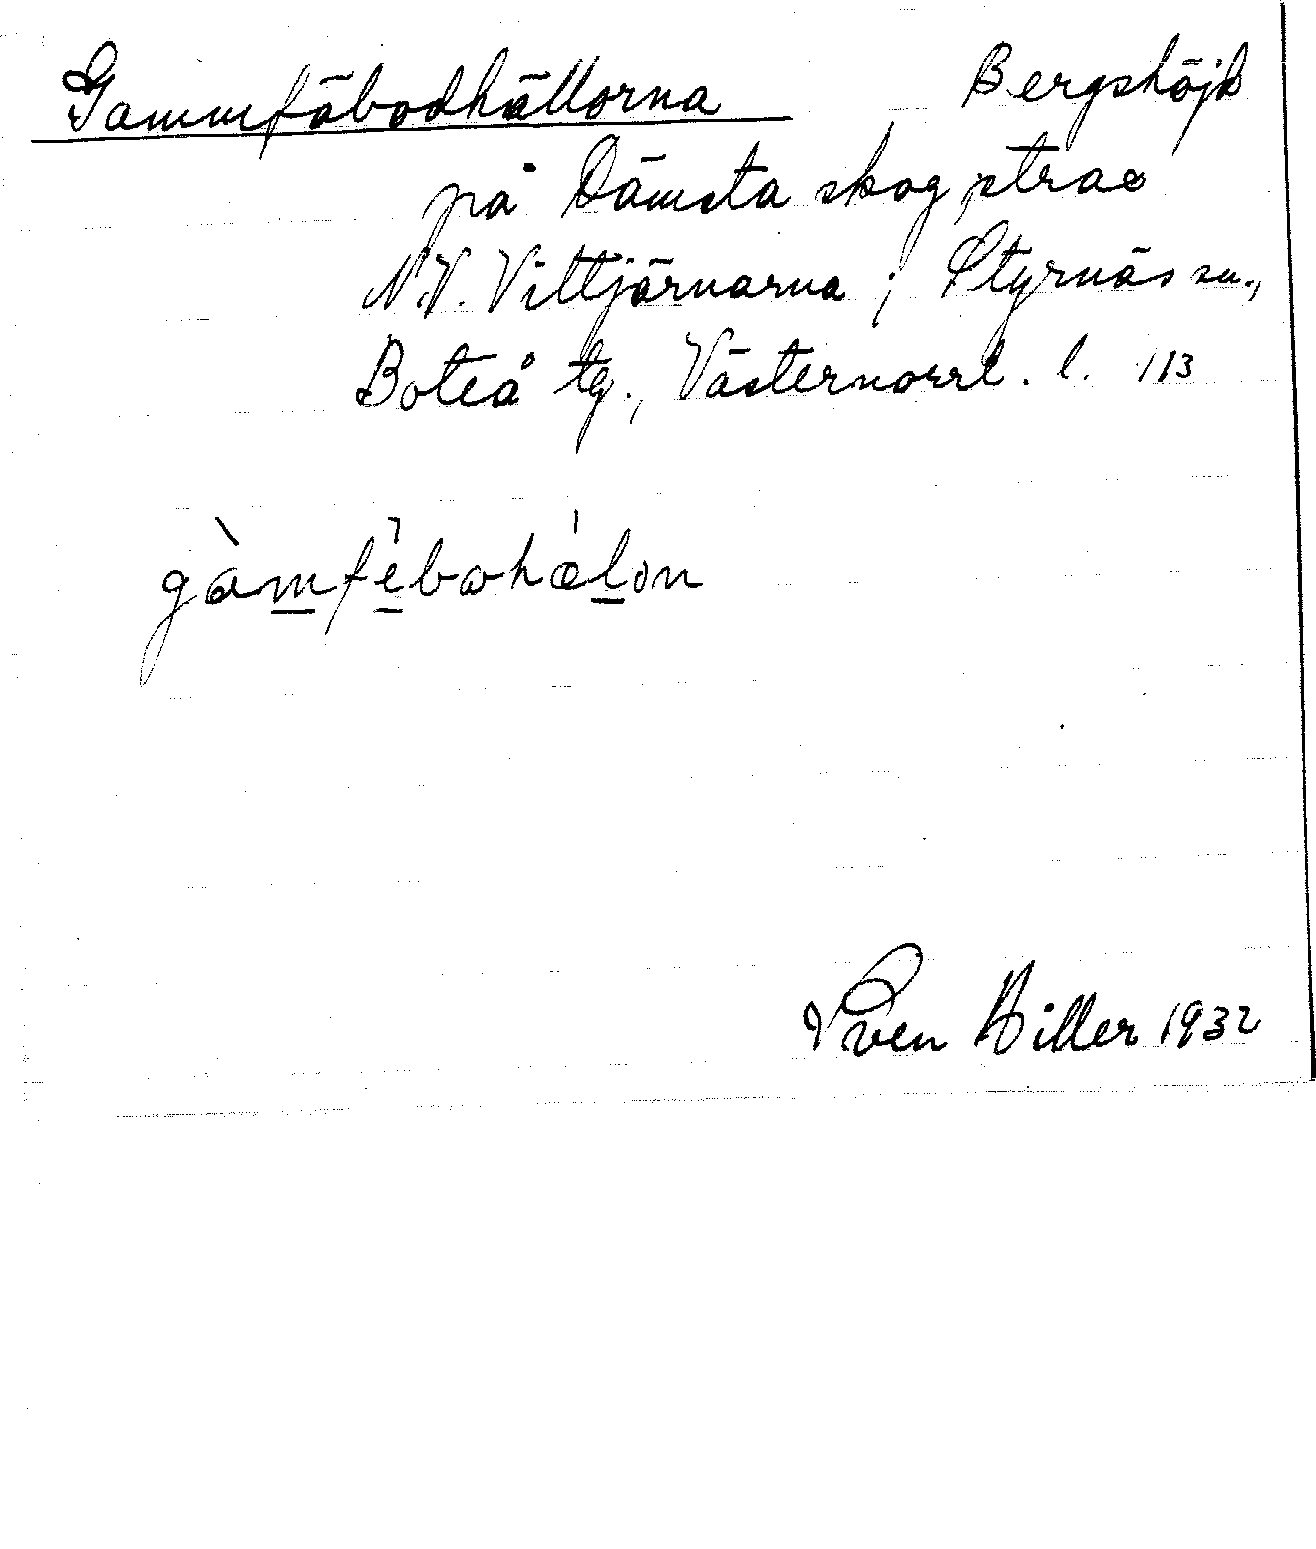 Gammfäbodhällorna Bergshöjd
på Dämsta skog strax
N.V. Vittjärnarna i Styrnäs sn.,
Boteå tg., Västernorrl. l. 113
gàmfèbωhǽlon
Sven Hiller 1932